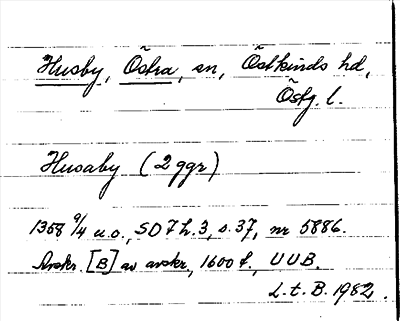 Husby, Östra, sn, Östkinds hd,
Östg. l.
Husaby (2 ggr)
1358 9/4 u.o., SD 7 h. 3, s. 37, nr 5886.
Avskr. [B] av avskr., 1600 t., UUB.
L.t.B. 1982.